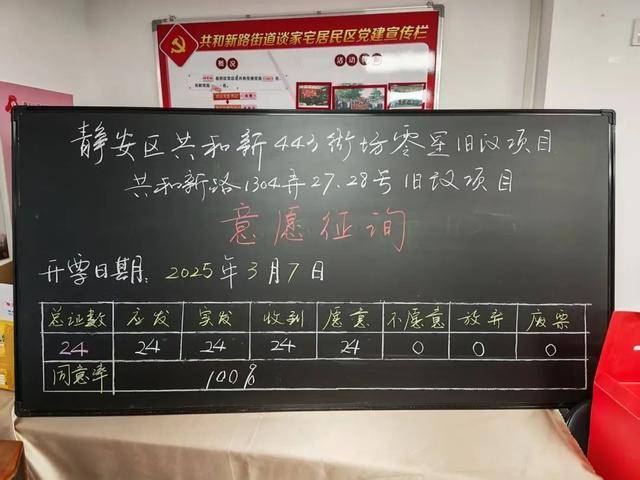 共和新路街道谈家宅居民区党建宣传栏
概况
静安区共和新443街坊零星旧改项目
共和新路1304弄27.28号旧改项目
意愿征询
开票日期: 2025年3月7日
总证数 应发 实发 收到 愿意 不愿意 放弃 废票
24 24 24 24 24 0 0 0
同意率 100%